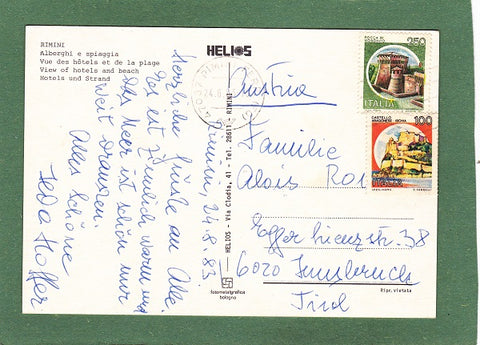 RIMINI
Alberghi e spiaggia
Vue des hôtels et de la plage
View of hotels and beach
Hotels und Strand
HELIOS
Rimini, 24.8.83
Herzliche Grüße an Alle.
Es ist ziemlich warm und
das Meer ist schön nur
weit draussen.
Alles Schöne
Hoffer
HELIOS - Via Clodia, 41 - Tel. 28611 - RIMINI
fotometalgrafica
bologna
ROCCA DI
250
ITALIA
CASTELLO
ARAGONESE ISCHIA
100
Austria
Familie
Alois
Egger Lienzstr. 38
6020 Innsbruck
Tirol
Ripr. vietata